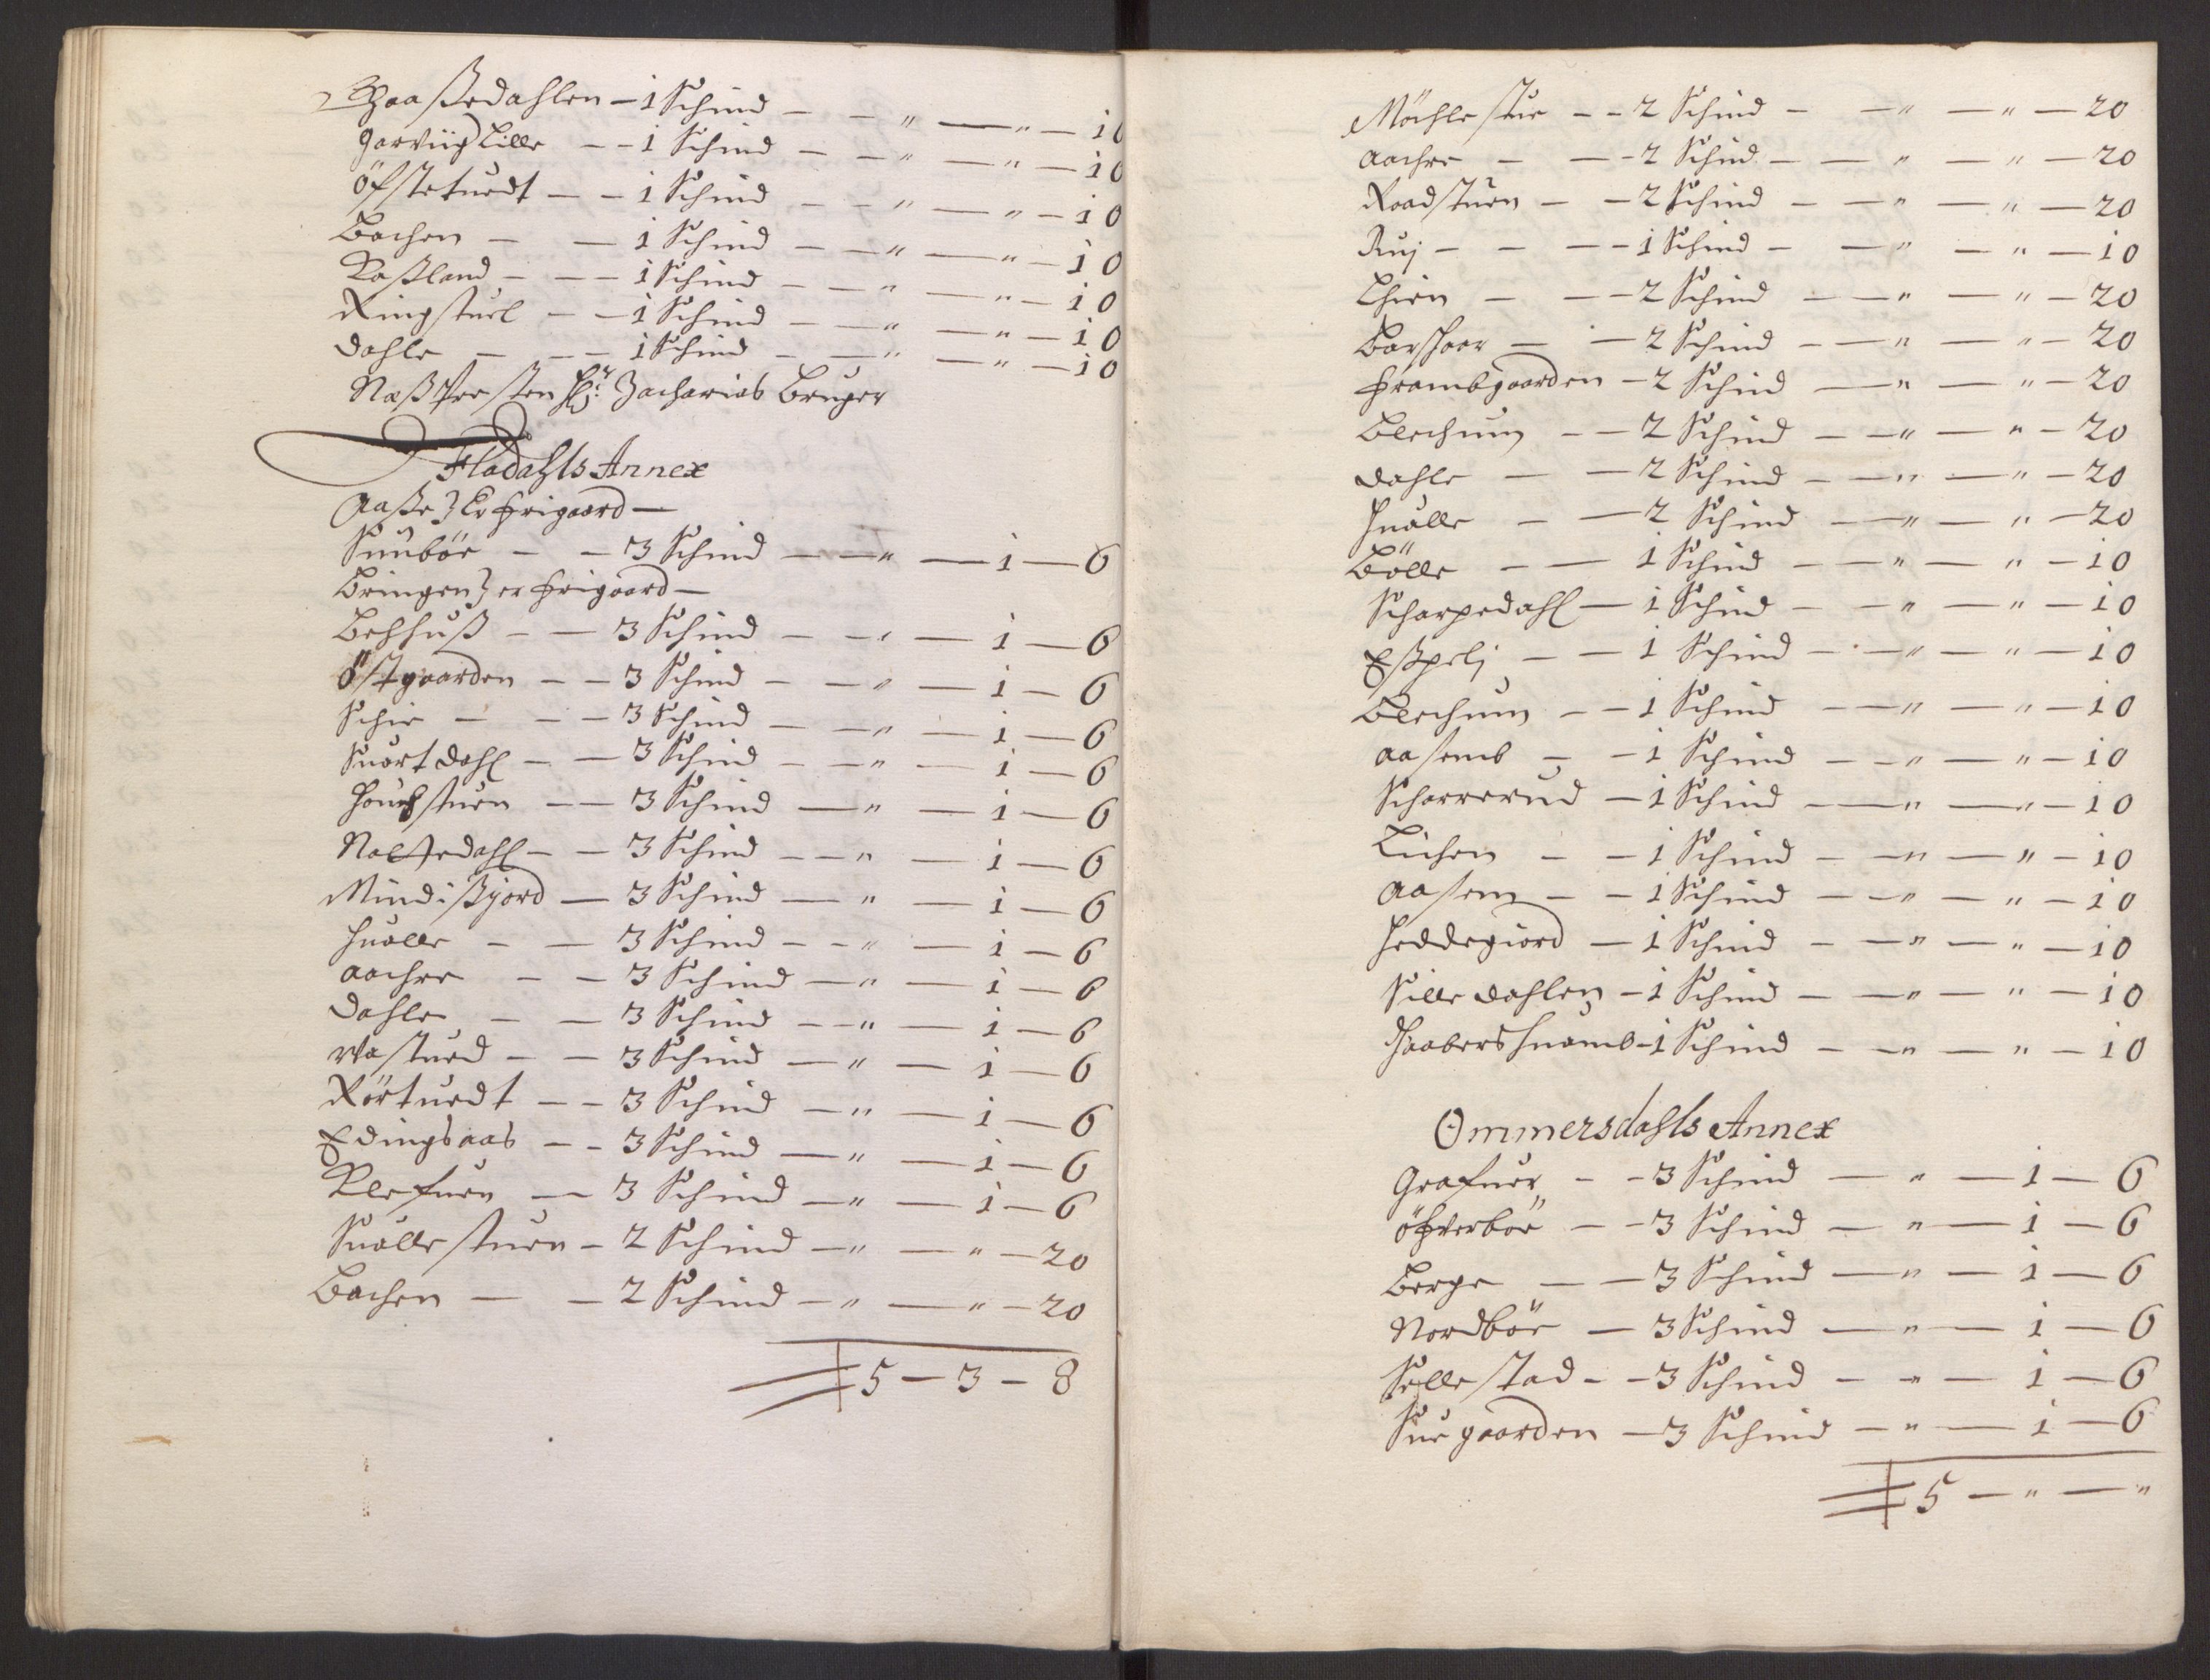 Haaßedahlen – 1 Schind – – " – " – 10
Garviig Lille – – 1 Schind – – " – " – 10
Öfstetuedt – – 1 Schind – – " – " – 10
Bachen – – 1 Schind – – " – " – 10
Kaßland – – – 1 Schind – – " – " – 10
Ringstuel – – 1 Schind – – " – " – 10
Dahle – – – 1 Schind – – " – " – 10
Næß Presten Hr: Zacharias Bruger
Fladahls Annex
Aaße } Er frigaard –
Sunböe – – 3 Schind – – " – 1 – 6
Bringen } er frigaard –
Behhuß – – 3 Schind – – " – 1 – 6
Östgaarden – – 3 Schind – – " – 1 – 6
Schie – – – 3 Schind – – " – 1 – 6
Suartdahl – – 3 Schind – – " – 1 – 6
Houchstuen – – 3 Schind – " – 1 – 6
Nolstedahl – – 3 Schind – – " – 1 – 6
Mindißjord – 3 Schind – " – 1 – 6
Hualle – – 3 Schind – – " – 1 – 6
Aachre – – 3 Schind – " – 1 – 6
Dahle – – 3 Schind – – " – 1 – 6
Vastued – – 3 Schind – " – 1 – 6
Rörtuedt – – 3 Schind – " – 1 – 6
Edingsaas – – 3 Schind – " – 1 – 6
Klefuen – 3 Schind – " – 1 – 6
Suallestuen – 2 Schind – " – " – 20
Bachen – – 2 Schind – " – " – 20
5 – 3 – 8
Möchlestue – – 2 Schind – – " – " – 20
Aachre – – – 2 Schind – – " – " – 20
Raadstuen – – 2 Schind – – " – " – 20
Ruj – – – – 1 Schind – – " – " – 10
Lhien – – – 2 Schind – – " – " – 20
Barshaar – – 2 Schind – – " – " – 20
Frambgaarden – 2 Schind – " – " – 20
Blechum – – 2 Schind – – " – " – 20
Dahle – – 2 Schind – – " – " – 20
Hualle – – 2 Schind – – " – " – 20
Bölle – – 1 Schind – – " – " – 10
Scharpedahl – 1 Schind – – " – " – 10
Eßpelj – – 1 Schind – – " – " – 10
Blechum – – 1 Schind – " – " – 10
Aasemb – – 1 Schind – – " – " – 10
Scharrerud – 1 Schind – – " – " – 10
Lichen – – 1 Schind – – " – " – 10
Aasem – – 1 Schind – – " – " – 10
Heddegiord – 1 Schind – – " – " – 10
Silledahlen – 1 Schind – – " – " – 10
Haabershuamb – 1 Schind – – " – " – 10
Ommersdahls Annex
Grafuer – – 3 Schind – " – 1 – 6
Öfverböe – – 3 Schind – " – 1 – 6
Berge – – 3 Schind – " – 1 – 6
Nordböe – 3 Schind – " – 1 – 6
Sellestad – – 3 Schind – " – 1 – 6
Suegaarden – 3 Schind – " – 1 – 6
5 – " – "